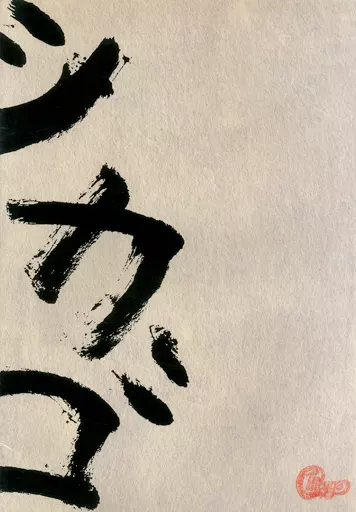 シカゴ
Chicago